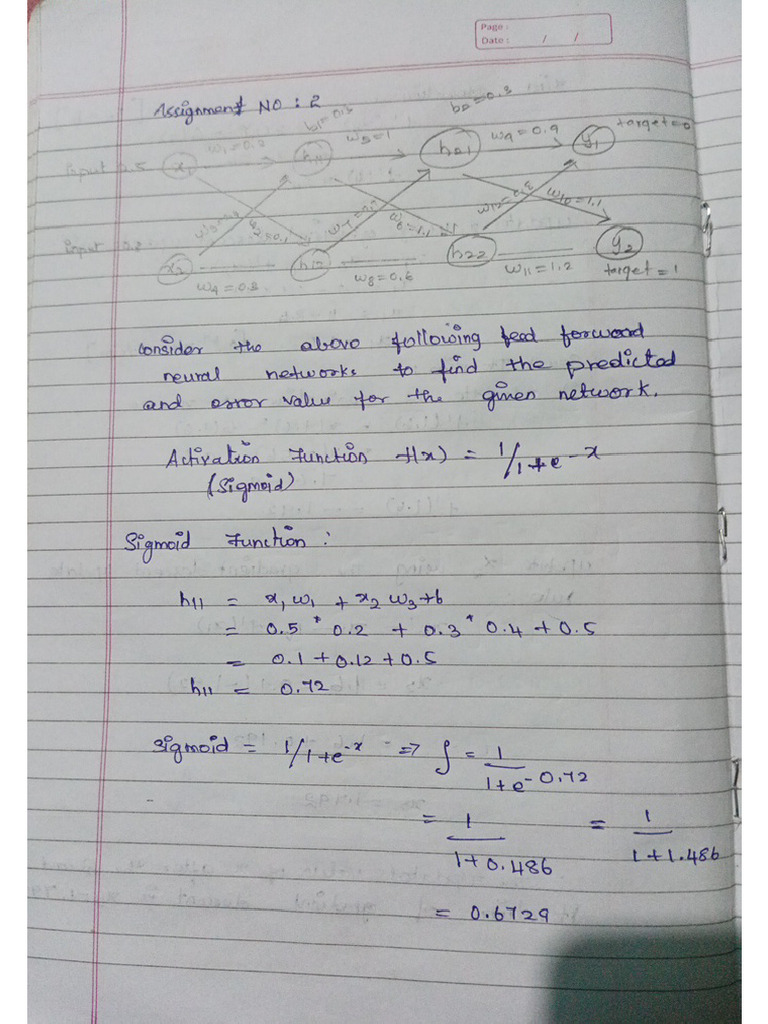 Page :
Date : / /
Assignment NO : 2
b1=0.5
b2=0.3
w1=0.2
w5=1
w9=0.9
target=0
Input 0.5
x1
h11
h21
y1
w2=0.1
w6=1.1
w10=1.1
Input
x2
h12
h22
y2
w4=0.8
w8=0.6
w11=1.2
target=1
Consider the above following feed forwood
neural networks to find the predicted
and error value for the given network.
Activation Function f(x) = 1/1+e^-x
(Sigmoid)
Sigmoid Function :
h11 = x1 w1 + x2 w3+b
= 0.5 * 0.2 + 0.3 * 0.4 + 0.5
= 0.1+0.12+0.5
h11 = 0.72
Sigmoid = 1/1+e^-x => ∫ = 1/1+e^-0.72
= 1/1+0.486 = 1/1+1.486
= 0.6729